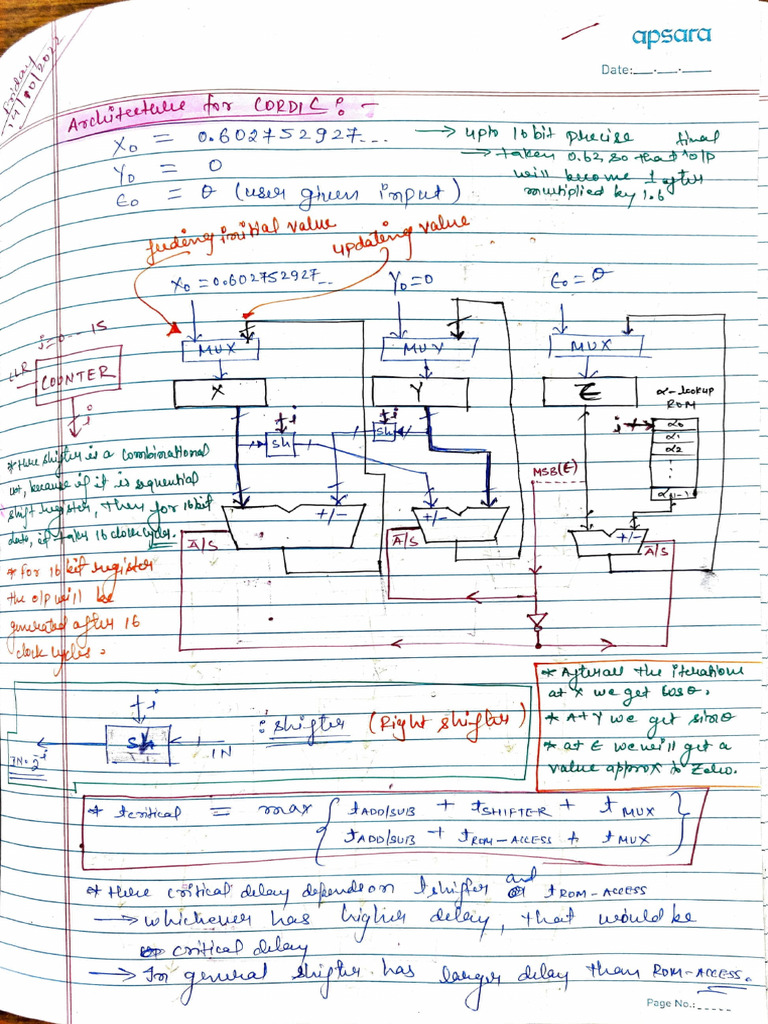 apsara
Date:__.__.__
Friday
14/10/2022
Architecture for CORDIC :-
X0 = 0.602752927... → upto 16 bit precise
Y0 = 0 → taken 0.62, so that final o/p
ϵ0 = θ (user given input) will become 1 after
multiplied by 1.6
feeding initial value
updating value
X0 = 0.602752927...
Y0 = 0
ϵ0 = θ
i=0---15
CLR
COUNTER
i
MUX
MUX
MUX
X
Y
Σ
α-lookup
ROM
i
α0
α1
α2
αn-1
i
sh
i
sh
MSB(Σ)
+/-
+/-
+/-
A̅/S
A̅/S
A̅/S
* Here shifter is a combinational
ckt, because if it is sequential
shift register, then for 16 bit
data, it takes 16 clock cycles.
* For 16 bit register
the o/p will be
generated after 16
clock cycles.
i
Sh
IN
IN * 2^-i
: shifter (Right shifter)
* After all the iterations
at X we get cosθ.
* At Y we get sinθ
* at ϵ we will get a
value approx to Zero.
* tcritical = max { tADD/SUB + tSHIFTER + tMUX
tADD/SUB + tROM-ACCESS + tMUX }
* Here critical delay depends on tshifter and tROM-ACCESS
→ whichever has higher delay, that would be
critical delay
→ In general shifter has larger delay than ROM-ACCESS.
Page No.:_____